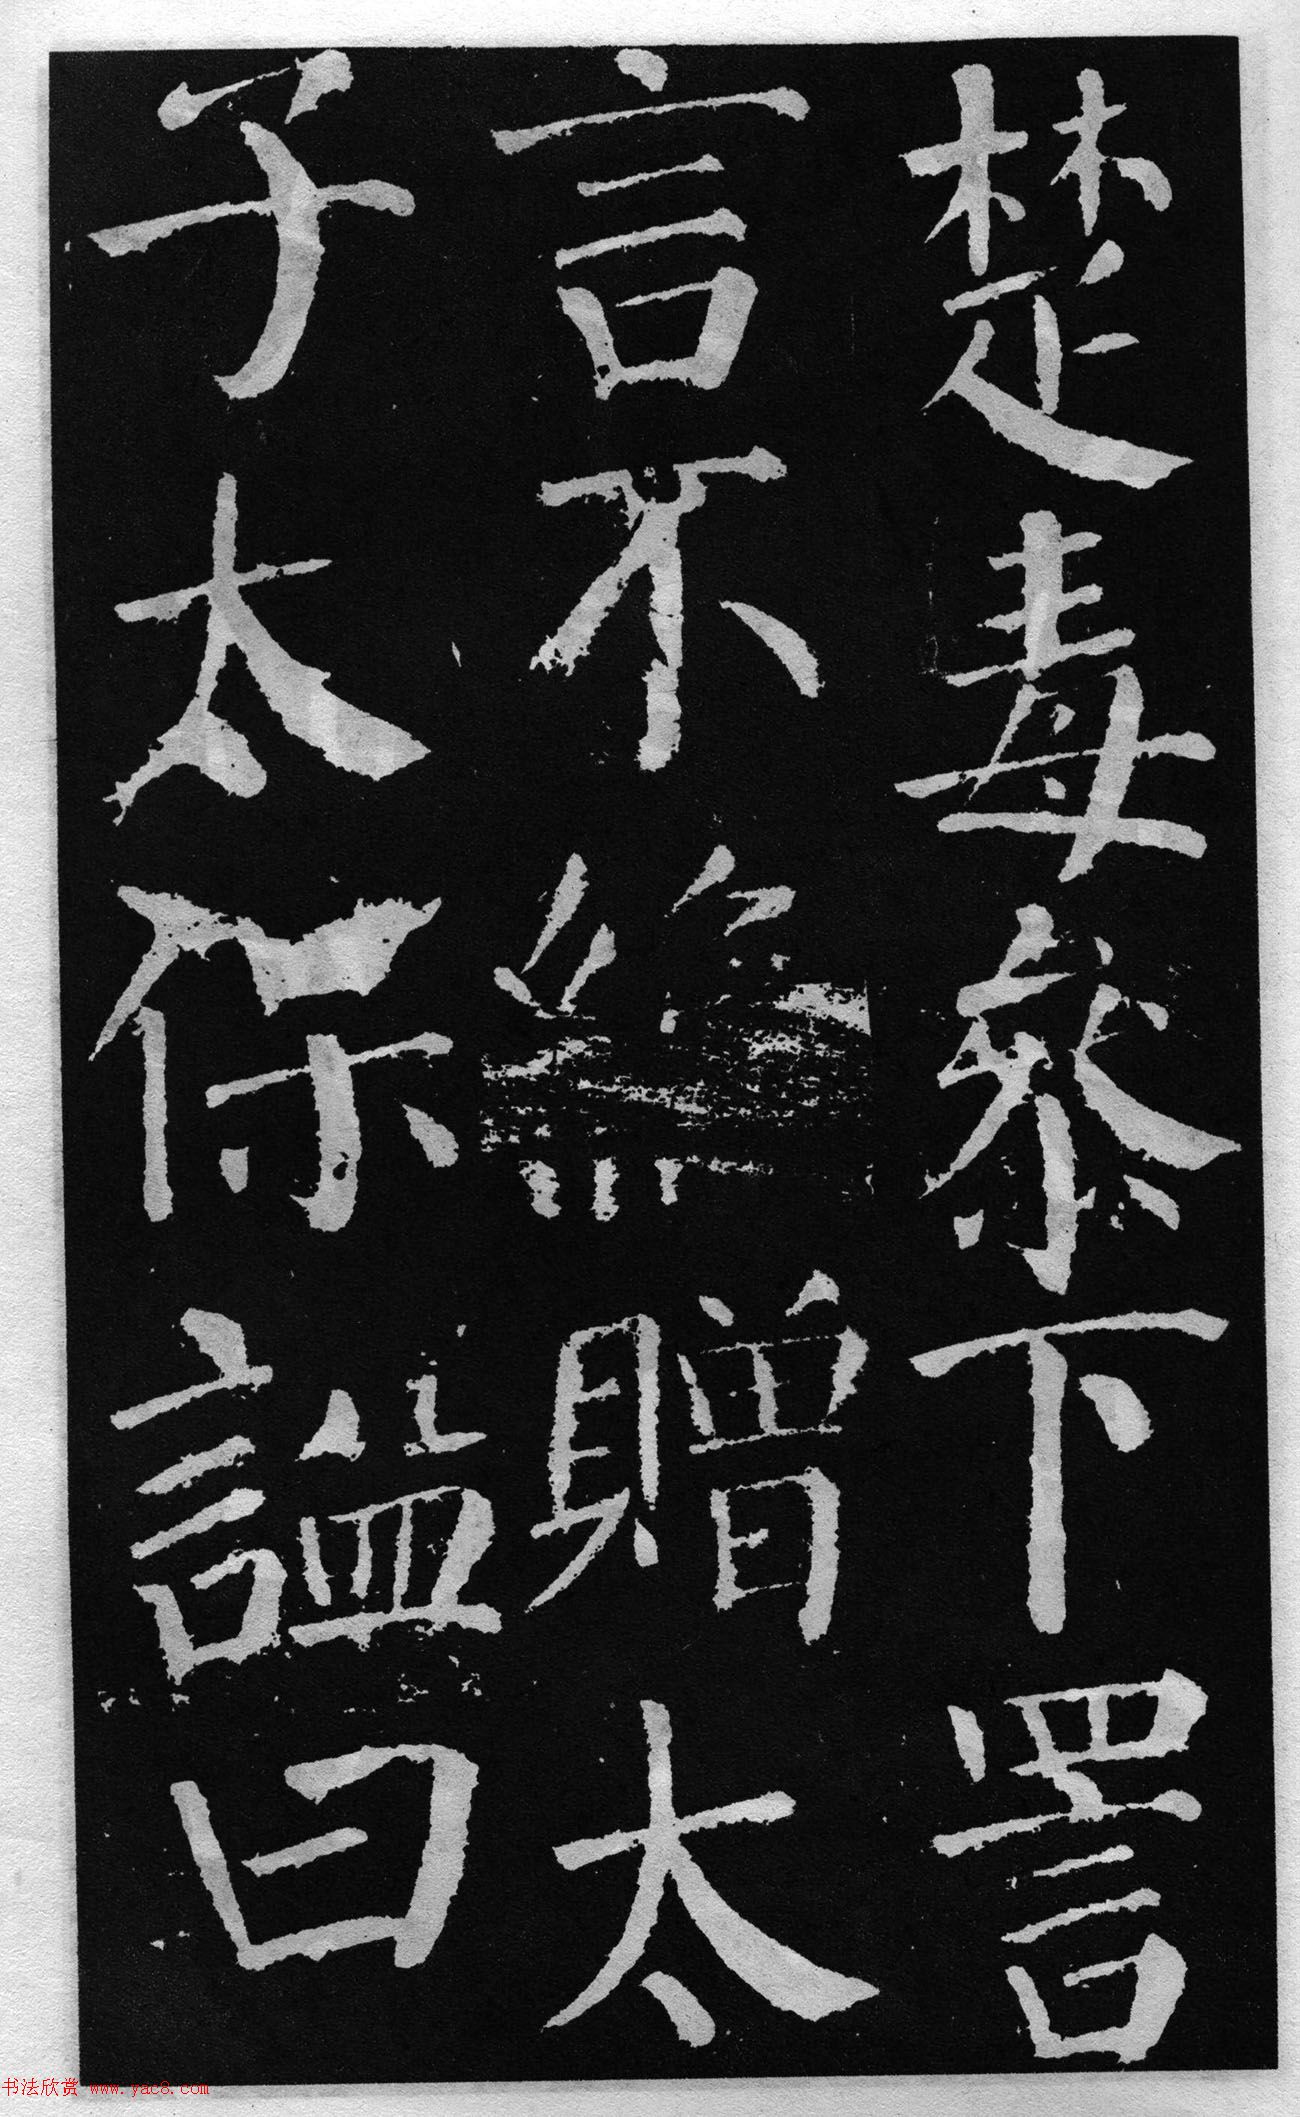 楚毒叅下詈
言不絶贈太
子太保謚曰
书法欣赏 www.yac8.com